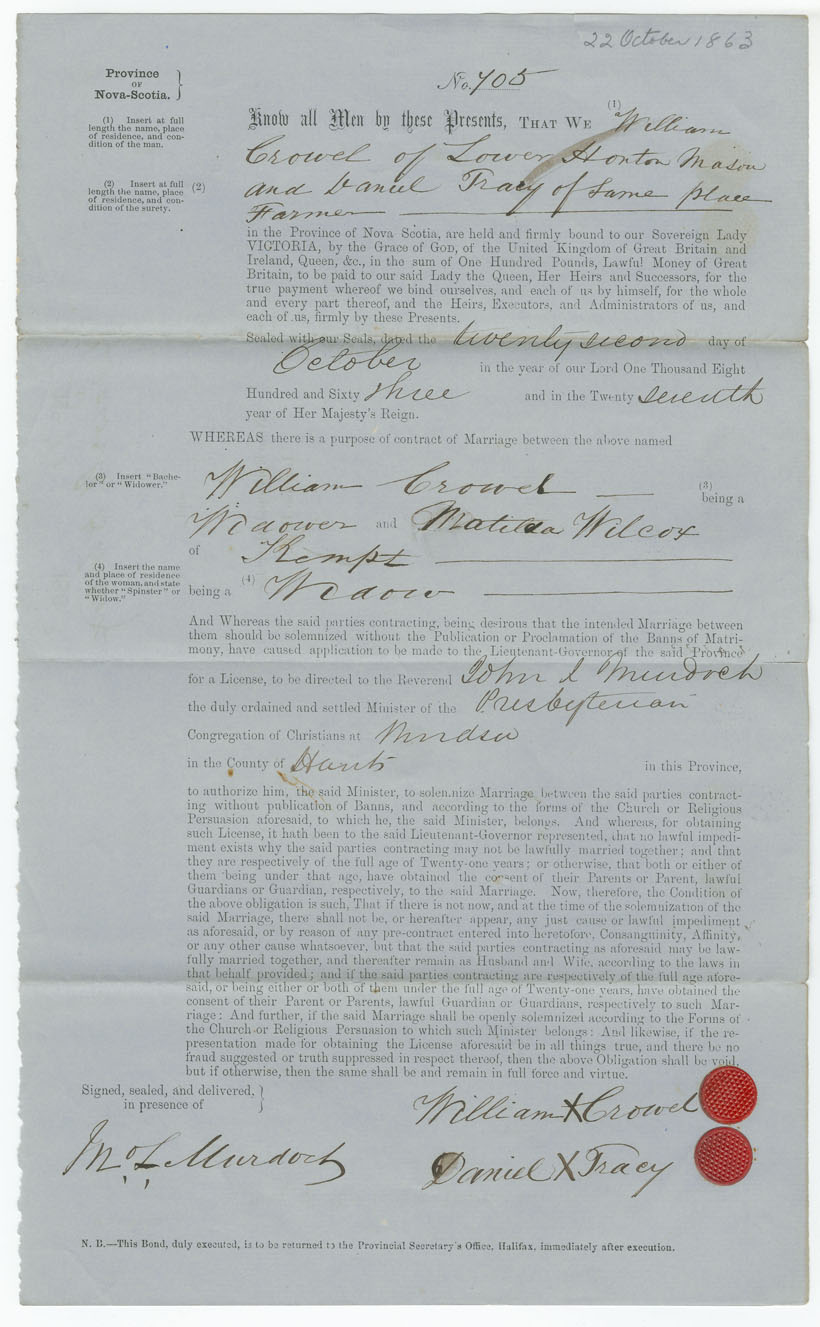 22 October 1863
Province
OF
Nova-Scotia.
No. 705
(1) Insert at full
length the name, place
of residence, and con-
dition of the man.
Know all Men by these Presents, THAT WE (1) William
Crowel of Lower Horton Mason
(2) Insert at full
length the name, place
of residence, and con-
dition of the surety.
(2) and Daniel Tracy of Same place
Farmer
in the Province of Nova Scotia, are held and firmly bound to our Sovereign Lady
VICTORIA, by the Grace of GOD, of the United Kingdom of Great Britain and
Ireland, Queen, &c., in the sum of One Hundred Pounds, Lawful Money of Great
Britain, to be paid to our said Lady the Queen, Her Heirs and Successors, for the
true payment whereof we bind ourselves, and each of us by himself, for the whole
and every part thereof, and the Heirs, Executors, and Administrators of us, and
each of us, firmly by these Presents.
Sealed with our Seals, dated the twenty second day of
October in the year of our Lord One Thousand Eight
Hundred and Sixty three and in the Twenty seventh
year of Her Majesty's Reign.
WHEREAS there is a purpose of contract of Marriage between the above named
(3) Insert "Bache-
lor" or "Widower."
William Crowel (3) being a
Widower and Matilda Wilcox
of Kempt
(4) Insert the name
and place of residence
of the woman, and state
whether "Spinster" or
"Widow."
being a (4) Widow
And Whereas the said parties contracting, being desirous that the intended Marriage between
them should be solemnized without the Publication or Proclamation of the Banns of Matri-
mony, have caused application to be made to the Lieutenant-Governor of the said Province
for a License, to be directed to the Reverend John L Murdoch
the duly ordained and settled Minister of the Presbyterian
Congregation of Christians at Windsor
in the County of Hants in this Province,
to authorize him, the said Minister, to solemnize Marriage between the said parties contract-
ing without publication of Banns, and according to the forms of the Church or Religious
Persuasion aforesaid, to which he, the said Minister, belongs. And whereas, for obtaining
such License, it hath been to the said Lieutenant-Governor represented, that no lawful impedi-
ment exists why the said parties contracting may not be lawfully married together; and that
they are respectively of the full age of Twenty-one years; or otherwise, that both or either of
them being under that age, have obtained the consent of their Parents or Parent, lawful
Guardians or Guardian, respectively, to the said Marriage. Now, therefore, the Condition of
the above obligation is such, That if there is not now, and at the time of the solemnization of the
said Marriage, there shall not be, or hereafter appear, any just cause or lawful impediment
as aforesaid, or by reason of any pre-contract entered into heretofore, Consanguinity, Affinity,
or any other cause whatsoever, but that the said parties contracting as aforesaid may be law-
fully married together, and thereafter remain as Husband and Wife, according to the laws in
that behalf provided; and if the said parties contracting are respectively of the full age afore-
said, or being either or both of them under the full age of Twenty-one years, have obtained the
consent of their Parent or Parents, lawful Guardian or Guardians, respectively to such Mar-
riage: And further, if the said Marriage shall be openly solemnized according to the Forms of
the Church or Religious Persuasion to which such Minister belongs: And likewise, if the re-
presentation made for obtaining the License aforesaid be in all things true, and there be no
fraud suggested or truth suppressed in respect thereof, then the above Obligation shall be void,
but if otherwise, then the same shall be and remain in full force and virtue.
Signed, sealed, and delivered,
in presence of
William X Crowel
Murdoch
Daniel X Tracy
N. B.—This Bond, duly executed, is to be returned to the Provincial Secretary's Office, Halifax, immediately after execution.